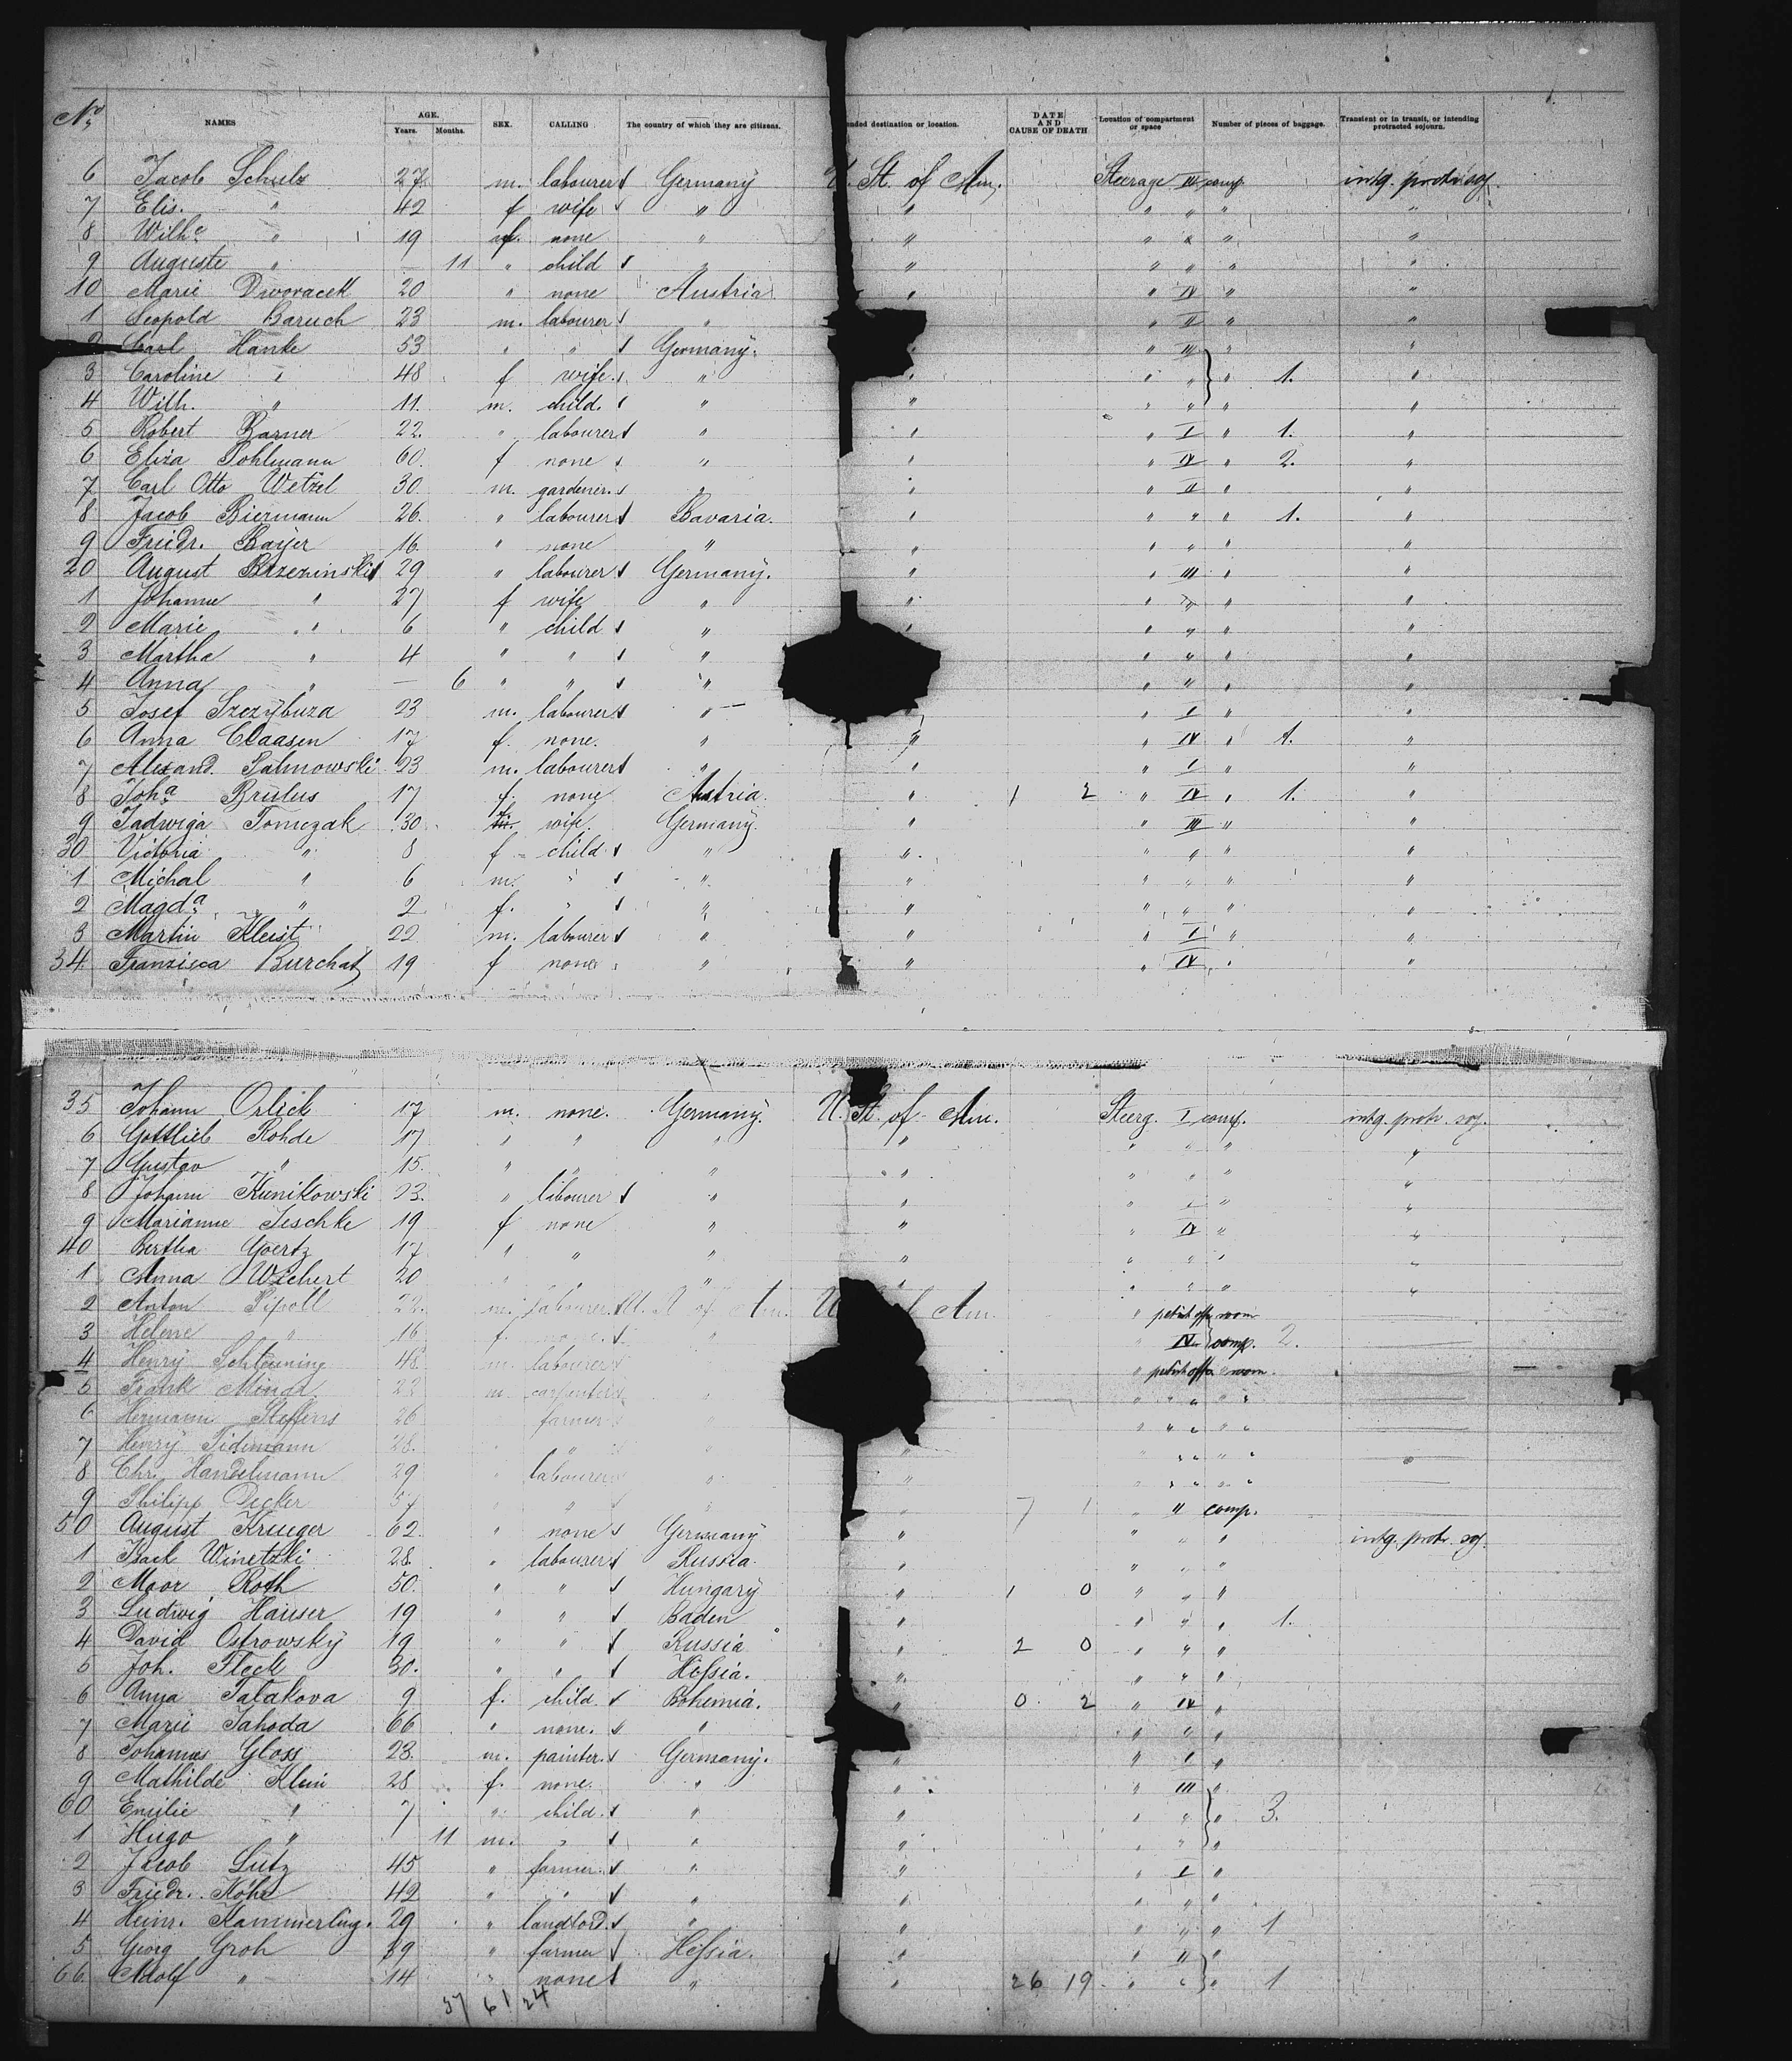 No. NAMES AGE. Years. Months. SEX. CALLING The country of which they are citizens. nded destination or location. DATE AND CAUSE OF DEATH Location of compartment or space Number of pieces of baggage. Transient or in transit, or intending protracted sojourn.
6 Jacob Schulz 27 m. labourer Germany U. St. of Am. Steerage comp. intg. protr. soj.
7 Elis. " 42 f wife " " " " " "
8 Wilhe. " 19 f. none " " " " " "
9 Auguste " — 11 " child " " " " " "
10 Marie Dworacek 20 " none Austria " " IV " "
1 Leopold Baruch 23 m. labourer " " " II " "
2 Carl Hanke 53 " " Germany. " " III " "
3 Caroline " 48 f wife " " " " " 1. "
4 Wilh. " 11. m. child. " " " " " "
5 Robert Barner 22. " labourer " " " I " 1. "
6 Eliza Pohlmann 60. f none " " " IV " 2. "
7 Carl Otto Wetzel 30. m. gardener " " " II " "
8 Jacob Biermann 26. " labourer Bavaria. " " " " 1. "
9 Friedr. Bayer 16. " none " " " " " "
20 August Brzezinski 29 " labourer Germany. " " III " "
1 Johanne " 27 f wife " " " " " "
2 Marie " 6 " child " " " " " "
3 Martha " 4 " " " " " " "
4 Anna " — 6 " " " " " " "
5 Josef Szczybuza 23 m. labourer " " " I " "
6 Anna Claasen 17 f. none. " " " IV " 1. "
7 Alexand. Salmowski 23 m. labourer " " " I " "
8 Joha. Brulus 17 f. none Austria. " 1 2 " IV " 1. "
9 Jadwiga Tomczak 30 wife. Germany. " " III " "
30 Victoria " 8 f child " " " " " "
1 Michal " 6 m. " " " " " " "
2 Magda. " 2 f. " " " " " " "
3 Martin Kleist 22 m. labourer " " " I " "
34 Franzisca Burchat 19 f none " " " IV " "
35 Johann Orlick 17 m. none. Germany. U. St. of Am. Steerg. I comp. intg. protr. soj.
6 Gottlieb Rohde 17 " " " " " " " "
7 Gustav " 15. " " " " " " " "
8 Johann Kunikowski 23. " labourer " " " " " "
9 Marianne Jeschke 19 f none " " " IV " "
40 Bertha Goertz 17 " " " " " " " "
1 Anna Wichert 20 " " " " " " " "
2 Anton Pipoll 22. m. labourer U. St. of Am. U. Am. "
3 Helene " 16 f. " " IV comp. 2.
4 Henry Schleuning 48. m. labourer "
5 Frank Minar 22 m. carpenter " " " " "
6 Hermann Steffens 26 farmer " " " " "
7 Henry Tidemann 28. " " " " " " "
8 Chr. Handelmann 29 " labourer " " " " " "
9 Philipp Decker 57 " " " " 7 1 " II comp.
50 August Krueger 62 " none Germany " " " " intg. protr. soj.
1 Isack Winetzki 28. " labourer Russia. " " " "
2 Moor Roth 50. " " Hungary " 1 0 " " "
3 Ludwig Hauser 19 " " Baden " " " " 1.
4 David Ostrowsky 19 " " Russia " 2 0 " " "
5 Joh. Fleck 30. " " Hessia. " " " "
6 Anna Talakova 9 f. child Bohemia. " 0 2 " IV "
7 Marie Jahoda 66 " none. " " " " "
8 Johannes Gloss 23. m. painter Germany. " " I "
9 Mathilde Klein 28 f. none. " " " III "
60 Emilie " 7 " child. " " " " " 3.
1 Hugo " 11 m. " " " " " "
2 Jacob Lutz 45 " farmer " " " I "
3 Friedr. Kohr 42 " " " " " " "
4 Heinr. Kammerling. 29 " landlord " " " " " 1
5 Georg Groh 39 " farmer Hessia. " " II "
66 Adolf " 14 " none " " 26 19 " " " 1
37 61 24